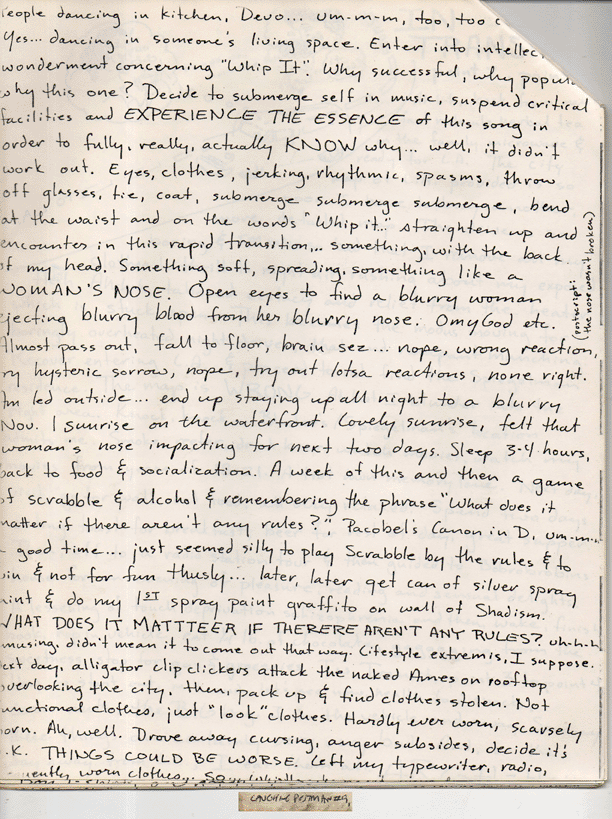 People dancing in kitchen, Devo... um-m-m, too, too
Yes... dancing in someone's living space. Enter into
wonderment concerning "Whip It". Why successful, why
why this one? Decide to submerge self in music, suspend critical
facilities and EXPERIENCE THE ESSENCE of this song in
order to fully, really, actually KNOW why... well, it didn't
work out. Eyes, clothes, jerking, rhythmic, spasms, throw
off glasses, tie, coat, submerge submerge submerge, bend
at the waist and on the words "Whip it..." straighten up and
encounter in this rapid transition... something, with the back
of my head. Something soft, spreading, something like a
WOMAN'S NOSE. Open eyes to find a blurry woman
ejecting blurry blood from her blurry nose. OmyGod etc.
Almost pass out, fall to floor, brain sez... nope, wrong reaction,
try hysteric sorrow, nope, try out lotsa reactions, none right.
Am led outside... end up staying up all night to a blurry
Nov. 1 sunrise on the waterfront. Lovely sunrise, felt that
woman's nose impacting for next two days. Sleep 3-4 hours,
back to food & socialization. A week of this and then a game
of scrabble & alcohol & remembering the phrase "What does it
matter if there aren't any rules?", Pacobel's Canon in D, um-m-m..
good time... just seemed silly to play Scrabble by the rules & to
win & not for fun thusly... later, later get can of silver spray
paint & do my 1ST spray paint graffito on wall of Shadism.
WHAT DOES IT MATTTEER IF THERERE AREN'T ANY RULES?. uh-h-h
amusing, didn't mean it to come out that way. Lifestyle extremis, I suppose.
next day, alligator clip clickers attack the naked Ames on rooftop
overlooking the city, then, pack up & find clothes stolen. Not
functional clothes, just "look" clothes. Hardly ever worn, scarsely
worn. Ah, well. Drove away cursing, anger subsides, decide it's
O.K. THINGS COULD BE WORSE. Left my typewriter, radio,
worn clothes..
(postscript:
the nose wasn't broken)